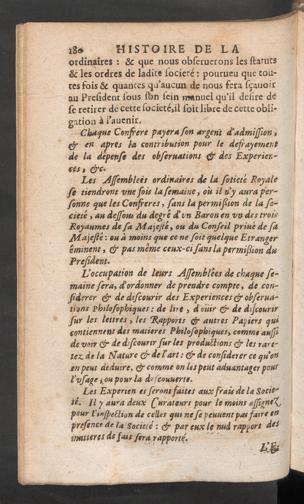 180 HISTOIRE DE LA
ordinaires : & que nous obseruerons les statuts
& les ordres de ladite societé : pourueu que tou-
tes fois & quantes qu'aucun de nous fera sçauoir
au President sous son sein manuel qu'il desire de
se retirer de cette societé, il soit libre de cette obli-
gation à l'auenir.
Chaque Confrere payera son argent d'admission,
& en apres la contribution pour le defrayement
de la depense des obseruations & des Experien-
ces, &c.
Les Assemblées ordinaires de la Societé Royale
se tiendront vne fois la semaine, où il n'y aura per-
sonne que les Confreres, sans la permission de la so-
cieté, au dessous du degré d'vn Baron en vn des trois
Royaumes de sa Majesté, ou du Conseil priué de sa
Majesté : ou à moins que ce ne soit quelque Etranger
éminent, & pas même ceux-ci sans la permission du
President.
L'occupation de leurs Assemblées de chaque se-
maine sera, d'ordonner de prendre compte, de con-
siderer & de discourir des Experiences & obserua-
tions Philosophiques : de lire, d'ouir & de discourir
sur les lettres, les Rapports & autres Papiers qui
contiennent des matieres Philosophiques, comme aussi
de voir & de discourir sur les productions & les rare-
tez de la Nature & de l'art : & de considerer ce qu'on
en peut deduire, & comme on les peut aduantager pour
l'vsage, ou pour la découuerte.
Les Experiences seront faites aux frais de la Socie-
té. Il y aura deux Curateurs pour le moins assignez
pour l'inspection de celles qui ne se peuuent pas faire en
presence de la Societé : & par eux le nud rapport des
matieres de fait sera rapporté.